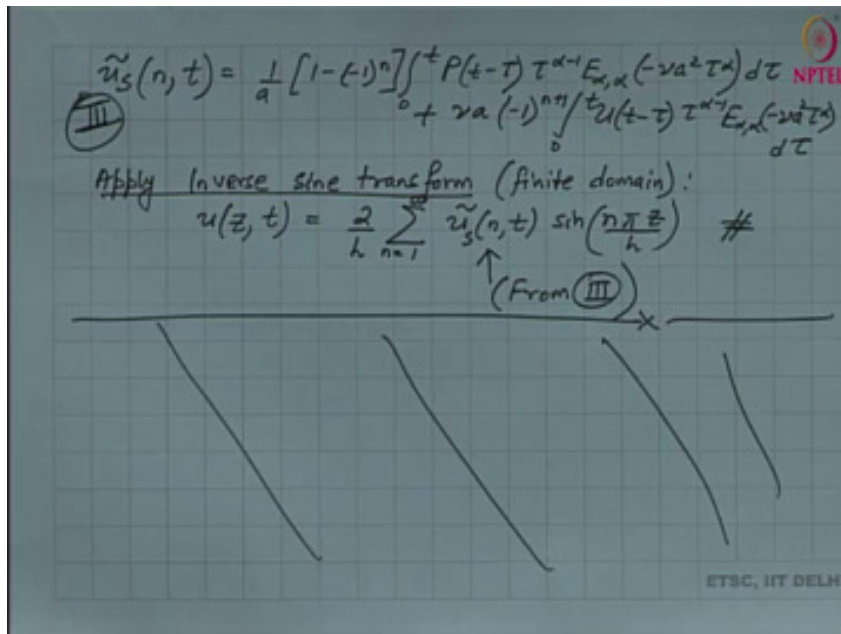 ũ_s(n, t) = 1/a [1-(-1)^n] ∫_0^t P(t-τ) τ^{α-1} E_{α,α}(-νa²τ^α) dτ
NPTEL
III
+ νa (-1)^{n+1} ∫_0^t U(t-τ) τ^{α-1} E_{α,α}(-νa²τ^α) dτ
Apply Inverse sine transform (finite domain):
u(z, t) = 2/h ∑_{n=1}^∞ ũ_s(n, t) sin(nπz/h) #
(From III)
ETSC, IIT DELH